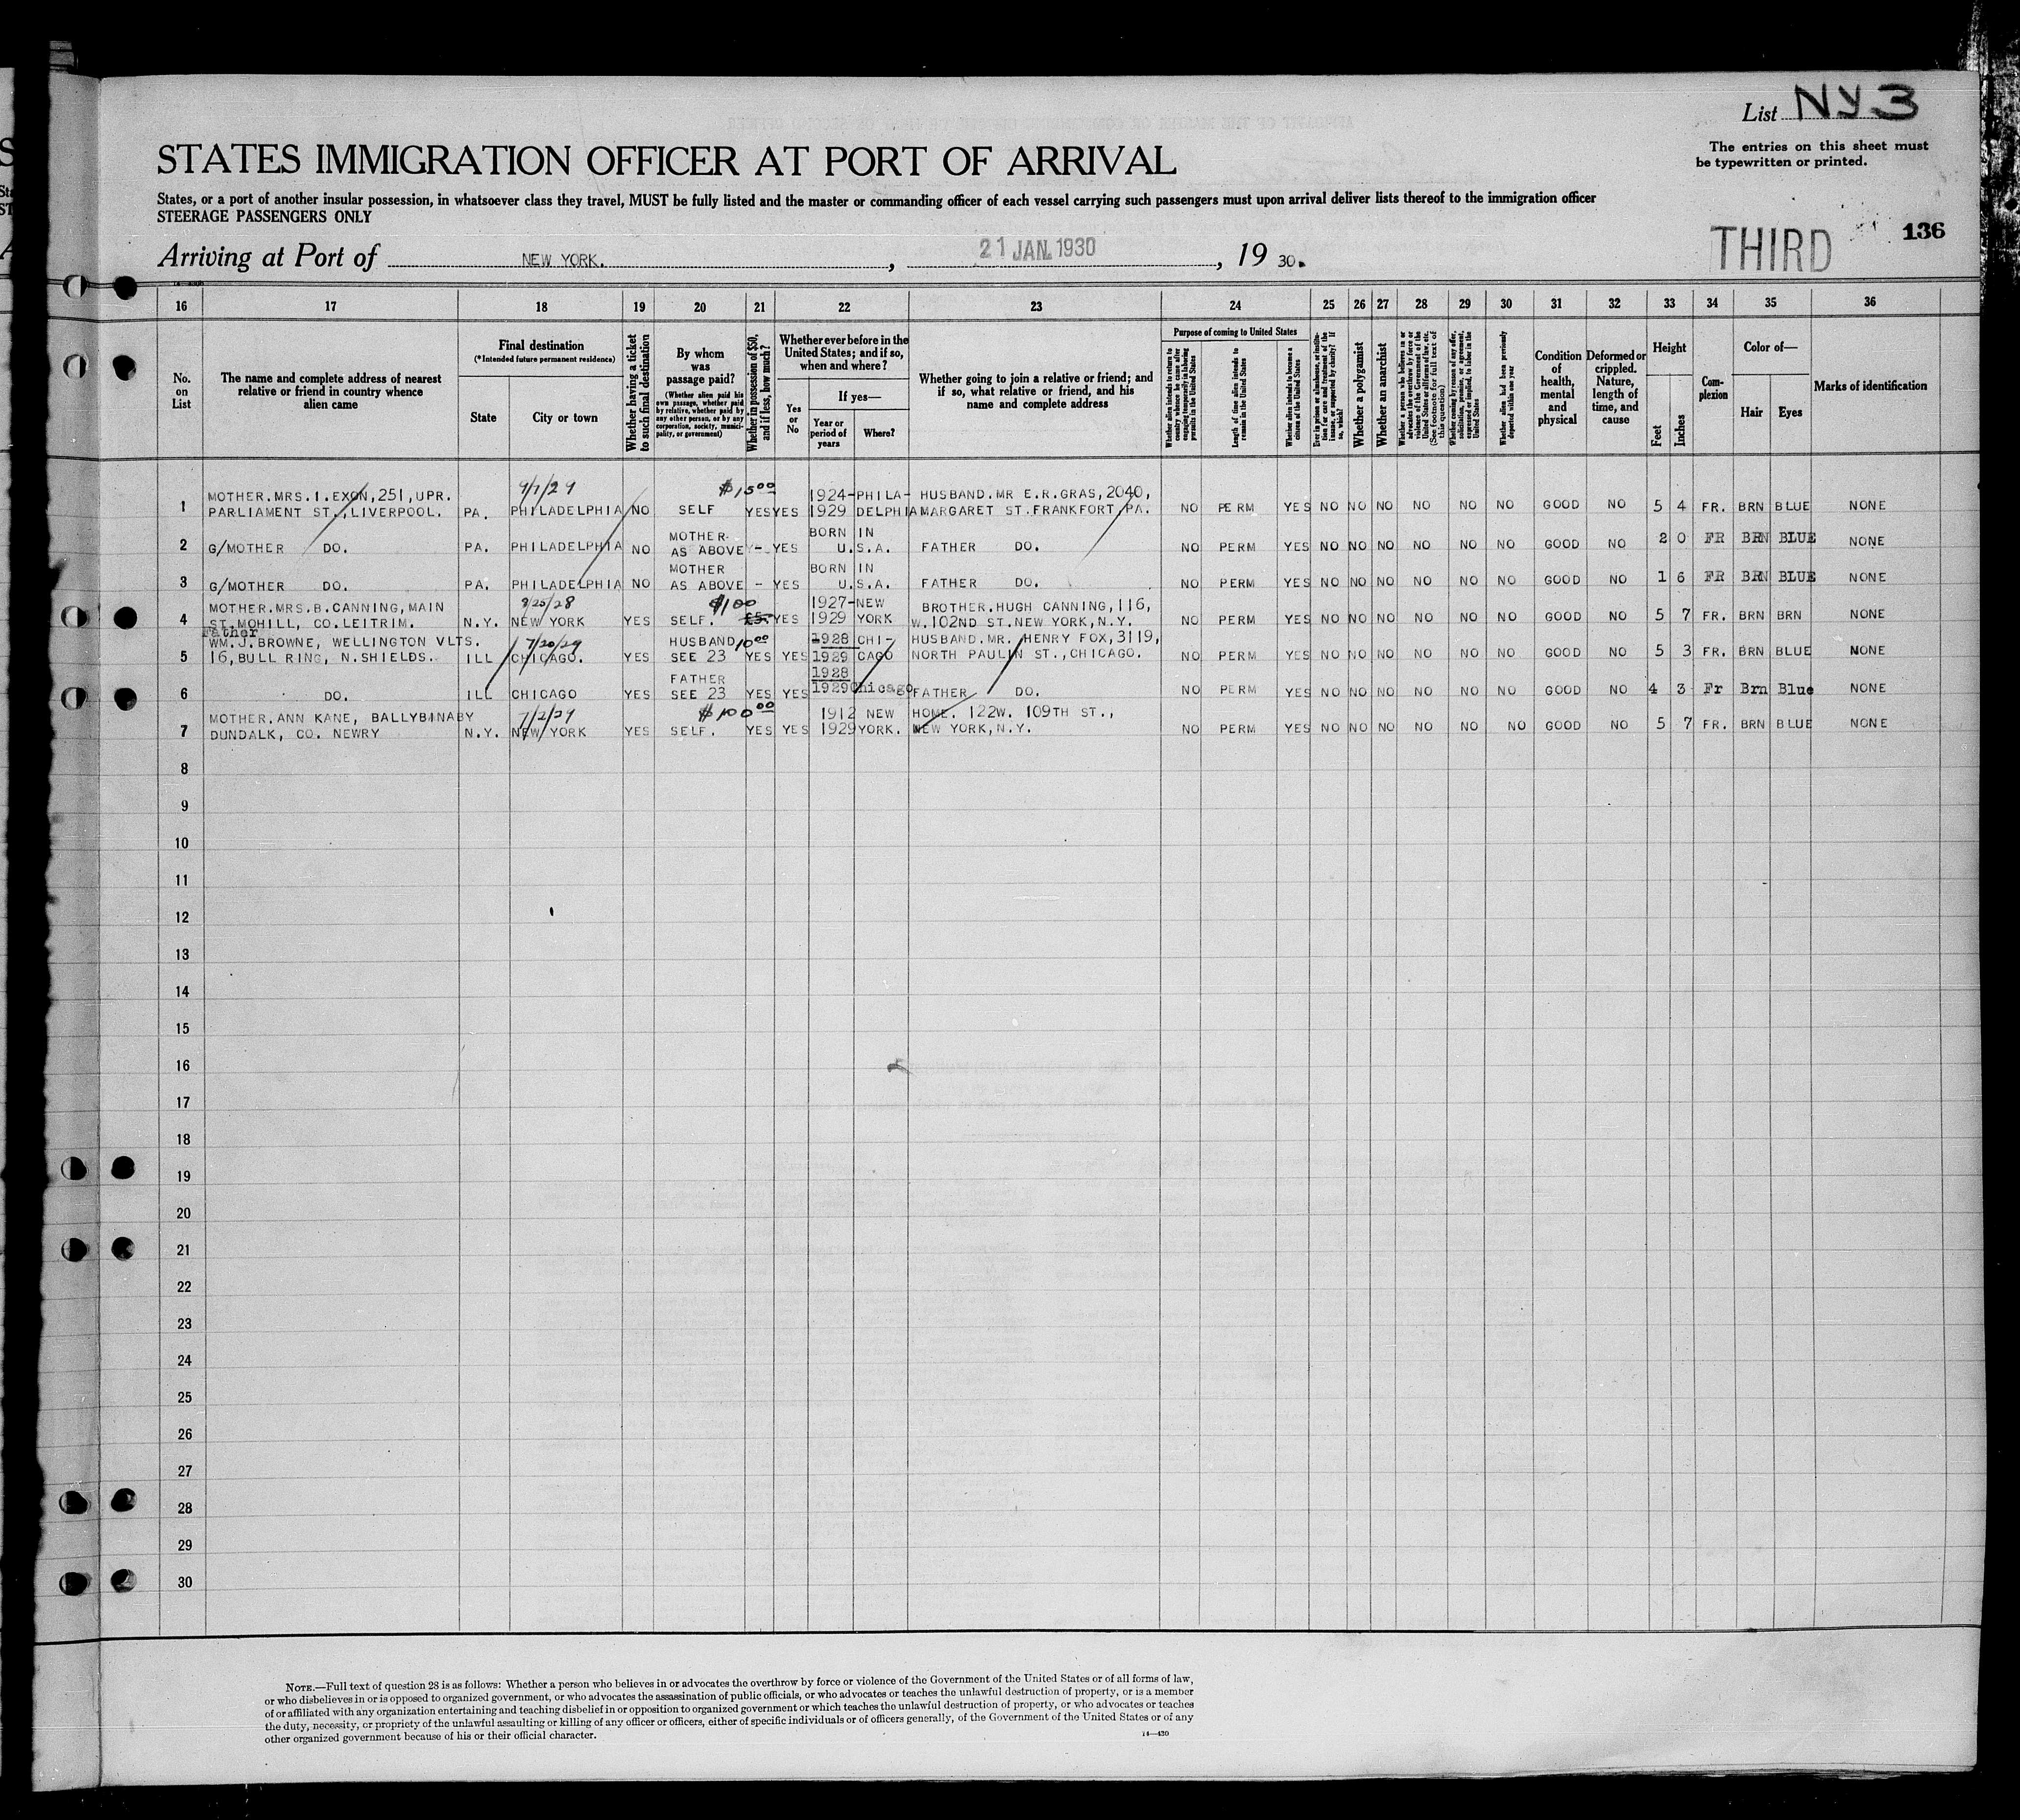 List NY3
The entries on this sheet must
be typewritten or printed.
STATES IMMIGRATION OFFICER AT PORT OF ARRIVAL
States, or a port of another insular possession, in whatsoever class they travel, MUST be fully listed and the master or commanding officer of each vessel carrying such passengers must upon arrival deliver lists thereof to the immigration officer
STEERAGE PASSENGERS ONLY
THIRD 136
Arriving at Port of NEW YORK. , 21 JAN. 1930 , 19 30.
16 17 18 19 20 21 22 23 24 25 26 27 28 29 30 31 32 33 34 35 36
No. on List
The name and complete address of nearest relative or friend in country whence alien came
Final destination
(*Intended future permanent residence)
State
City or town
Whether having a ticket to such final destination
By whom was passage paid?
(Whether alien paid his own passage, whether paid by relative, whether paid by any other person, or by any corporation, society, municipality, or government)
Whether in possession of $50, and if less, how much?
Whether ever before in the United States; and if so, when and where?
Yes or No
If yes—
Year or period of years
Where?
Whether going to join a relative or friend; and if so, what relative or friend, and his name and complete address
Purpose of coming to United States
Whether alien intends to return to country whence he came after engaging temporarily in laboring pursuits in the United States
Length of time alien intends to remain in the United States
Whether alien intends to become a citizen of the United States
Ever in prison or almshouse, or institution for care and treatment of the insane, or supported by charity? If so, which?
Whether a polygamist
Whether an anarchist
Whether a person who believes in or advocates the overthrow by force or violence of the Government of the United States or all forms of law, etc. (See footnote for full text of this question)
Whether coming by reason of any offer, solicitation, promise, or agreement, expressed or implied, to labor in the United States
Whether alien had been previously deported within one year
Condition of health, mental and physical
Deformed or crippled. Nature, length of time, and cause
Height
Feet
Inches
Complexion
Color of—
Hair
Eyes
Marks of identification
9/1/29 $15.00
1 MOTHER.MRS.I.EXON,251,UPR. 1924- PHILA- HUSBAND.MR E.R.GRAS,2040,
PARLIAMENT ST.,LIVERPOOL. PA. PHILADELPHIA NO SELF YES YES 1929 DELPHIA MARGARET ST.FRANKFORT,PA. NO PERM YES NO NO NO NO NO NO GOOD NO 5 4 FR. BRN BLUE NONE
MOTHER. BORN IN
2 G/MOTHER DO. PA. PHILADELPHIA NO AS ABOVE - YES U.S.A. FATHER DO. NO PERM YES NO NO NO NO NO NO GOOD NO 2 0 FR BRN BLUE NONE
MOTHER BORN IN
3 G/MOTHER DO. PA. PHILADELPHIA NO AS ABOVE - YES U.S.A. FATHER DO. NO PERM YES NO NO NO NO NO NO GOOD NO 1 6 FR BRN BLUE NONE
MOTHER.MRS.B.CANNING,MAIN 8/25/28 $100 1927- NEW BROTHER.HUGH CANNING,116,
4 ST.MOHILL, CO.LEITRIM. N.Y. NEW YORK YES SELF. £5. YES 1929 YORK W.102ND ST.NEW YORK,N.Y. NO PERM YES NO NO NO NO NO NO GOOD NO 5 7 FR. BRN BRN NONE
Father
WM.J.BROWNE, WELLINGTON VLTS. 7/20/29 HUSBAND 10.00 1928 CHI- HUSBAND.MR. HENRY FOX,3119,
5 16,BULL RING, N.SHIELDS. ILL CHICAGO. YES SEE 23 YES YES 1929 CAGO NORTH PAULIN ST.,CHICAGO. NO PERM YES NO NO NO NO NO NO GOOD NO 5 3 FR. BRN BLUE NONE
FATHER 1928
6 DO. ILL CHICAGO YES SEE 23 YES YES 1929 Chicago FATHER DO. NO PERM YES NO NO NO NO NO NO GOOD NO 4 3 Fr Brn Blue NONE
MOTHER.ANN KANE, BALLYBINABY 7/2/29 $100.00 1912 NEW HOME. 122W. 109TH ST.,
7 DUNDALK, CO. NEWRY N.Y. NEW YORK YES SELF. YES YES 1929 YORK. NEW YORK,N.Y. NO PERM YES NO NO NO NO NO NO GOOD NO 5 7 FR. BRN BLUE NONE
8
9
10
11
12
13
14
15
16
17
18
19
20
21
22
23
24
25
26
27
28
29
30
NOTE.—Full text of question 28 is as follows: Whether a person who believes in or advocates the overthrow by force or violence of the Government of the United States or of all forms of law,
or who disbelieves in or is opposed to organized government, or who advocates the assassination of public officials, or who advocates or teaches the unlawful destruction of property, or is a member
of or affiliated with any organization entertaining and teaching disbelief in or opposition to organized government or which teaches the unlawful destruction of property, or who advocates or teaches
the duty, necessity, or propriety of the unlawful assaulting or killing of any officer or officers, either of specific individuals or of officers generally, of the Government of the United States or of any
other organized government because of his or their official character.
14—430